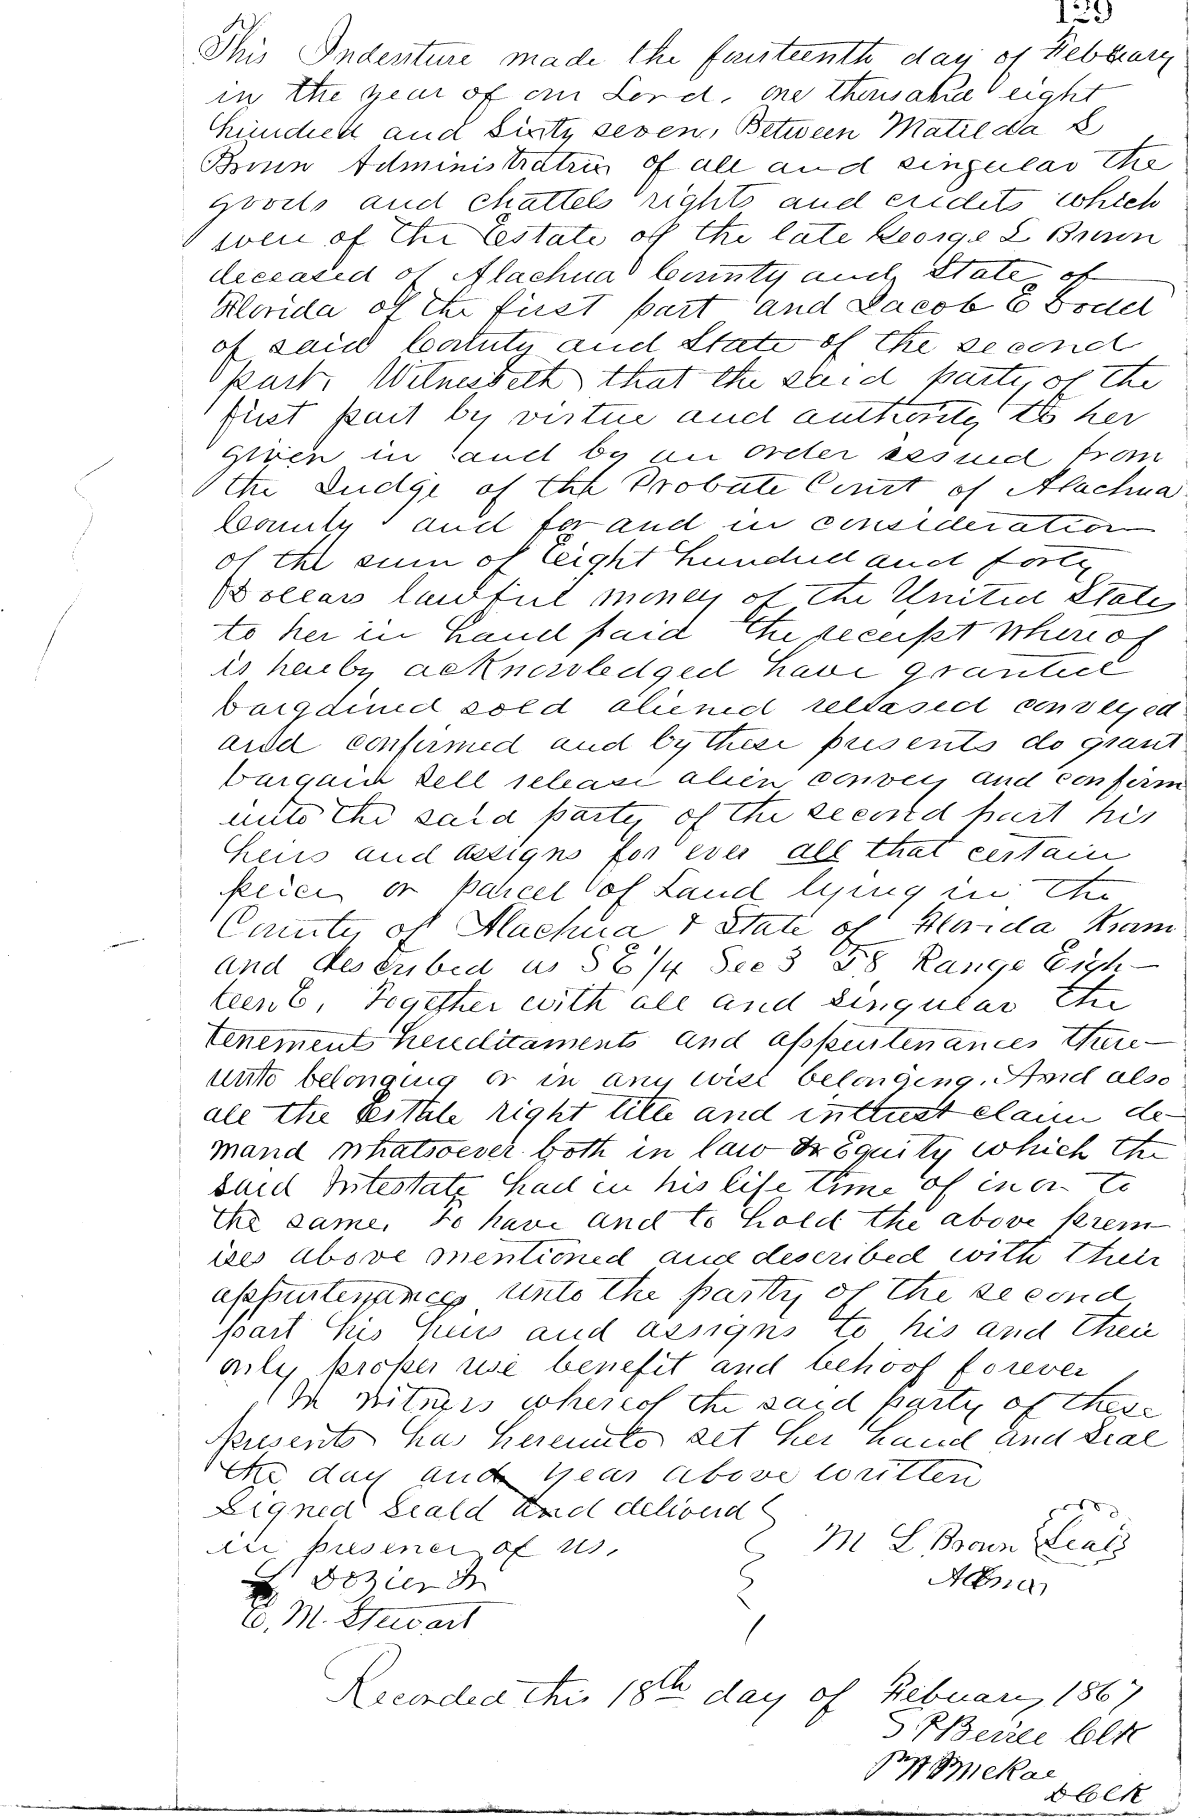 129
This Indenture made the fourteenth day of Febuary
in the year of our Lord, one thousand eight
hundred and Sixty seven, Between Matilda L
Brown Administratrix of all and singular the
goods and chattels rights and credets which
were of the Estate of the late George L Brown
deceased of Alachua County and State of
Florida of the first part and Jacob E
of said County and State of the second
part, Witnesseth that the said party of the
first part by virtue and authority to her
given in and by an order issued from
the Judge of the Probate Court of Alachua
County and for and in consideration
of the sum of Eight hundred and forty
Dollars lawful money of the United States
to her in hand paid the receipt whereof
is hereby acknowledged have granted
bargained sold aliened released conveyed
and confirmed and by these presents do grant
bargain sell release alien convey and confirm
unto the said party of the second part his
heirs and assigns for ever all that certain
peice or parcel of Land lying in the
County of Alachua & State of Florida Known
and described as S E 1/4 Sec 3 T 8 Range Eigh-
teen E, Together with all and singular the
tenements hereditaments and appurtenances there-
unto belonging or in any wise belonging. And also
all the Estate right title and intrust claim de-
mand whatsoever both in law & Equity which the
said Intestate had in his life time of in or to
the same. To have and to hold the above prem-
ises above mentioned and described with their
appurtenances unto the party of the second
part his heirs and assigns to his and their
only proper use benefit and behoof forever
In witness whereof the said party of these
presents has hereunto set her hand and seal
the day and year above written
Signed Seald and deliverd
in presence of us,
M L Brown Seal
Admx
L Dozier Jr
C. M. Stewart
Recorded this 18th day of Febuary 1867
Clk
McKae
D Clk